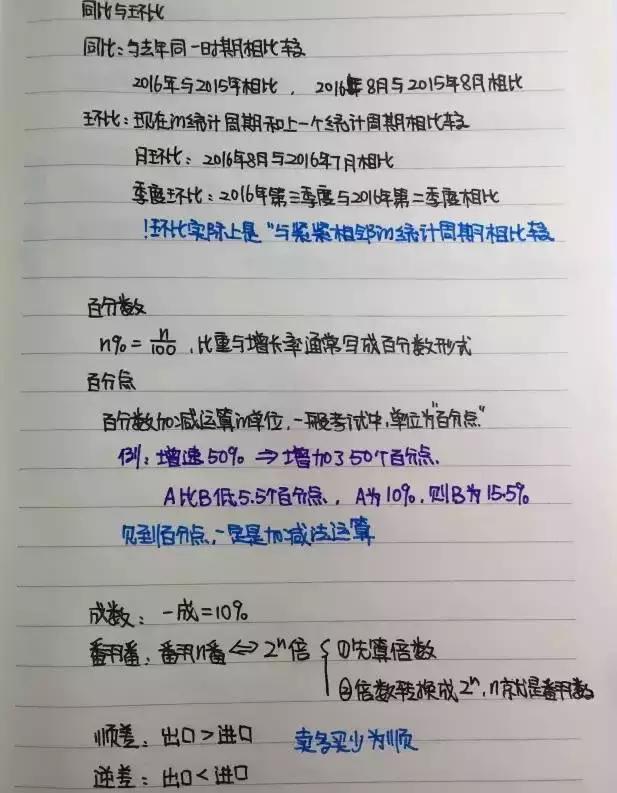 同比与环比
同比：与去年同一时期相比较
2016年与2015年相比，2016年8月与2015年8月相比
环比：现在的统计周期和上一个统计周期相比较
月环比：2016年8月与2016年7月相比
季度环比：2016年第三季度与2016年第二季度相比
!环比实际上是“与紧紧相邻的统计周期相比较
百分数
n%=n/100，比重与增长率通常写成百分数形式
百分点
百分数加减运算的单位，一般考试中，单位为“百分点”
例：增速50% ⇒ 增加了50个百分点.
A比B低5.5个百分点，A为10%，则B为15.5%
见到百分点，一定是加减法运算
成数：一成=10%
翻番：翻n番⇔2ⁿ倍 { ①先算倍数
②倍数转换成2ⁿ，n就是翻番数
顺差：出口>进口 卖多买少为顺
逆差：出口<进口